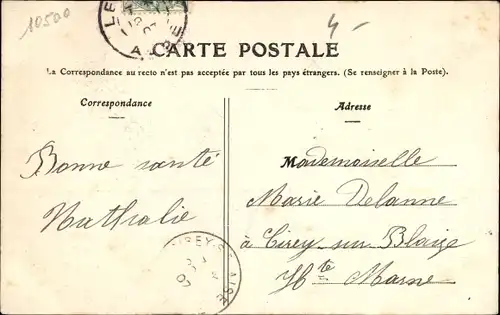 10500
4-
CARTE POSTALE
La Correspondance au recto n'est pas acceptée par tous les pays étrangers. (Se renseigner à la Poste).
Correspondance
Adresse
Bonne santé
Nathalie
Mademoiselle
Marie Delanne
à Cirey-sur-Blaize
Hte Marne